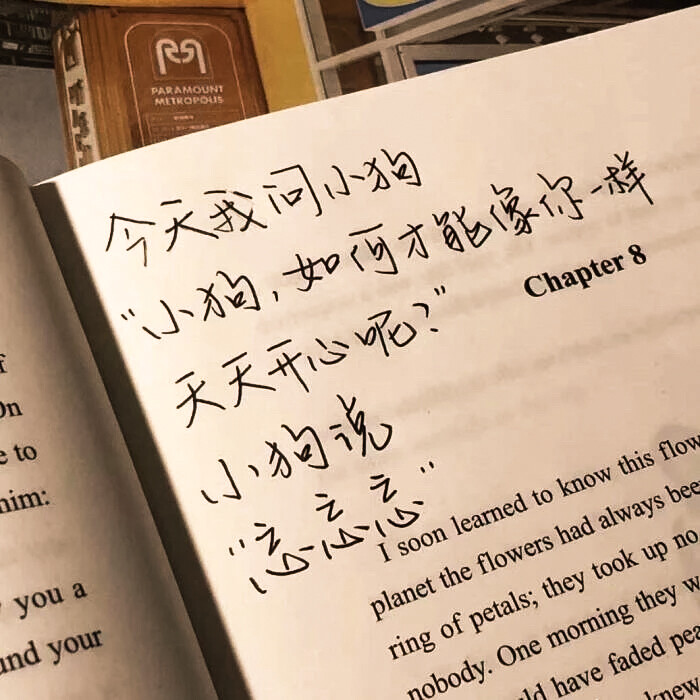 PARAMOUNT
METROPOLIS
今天我问小狗
"小狗,如何才能像你一样
天天开心呢?"
小狗说
"忘忘忘"
On
e to
him:
you a
und your
Chapter 8
I soon learned to know this flow
planet the flowers had always bee
ring of petals; they took up no
nobody. One morning they w
uld have faded pea
knew